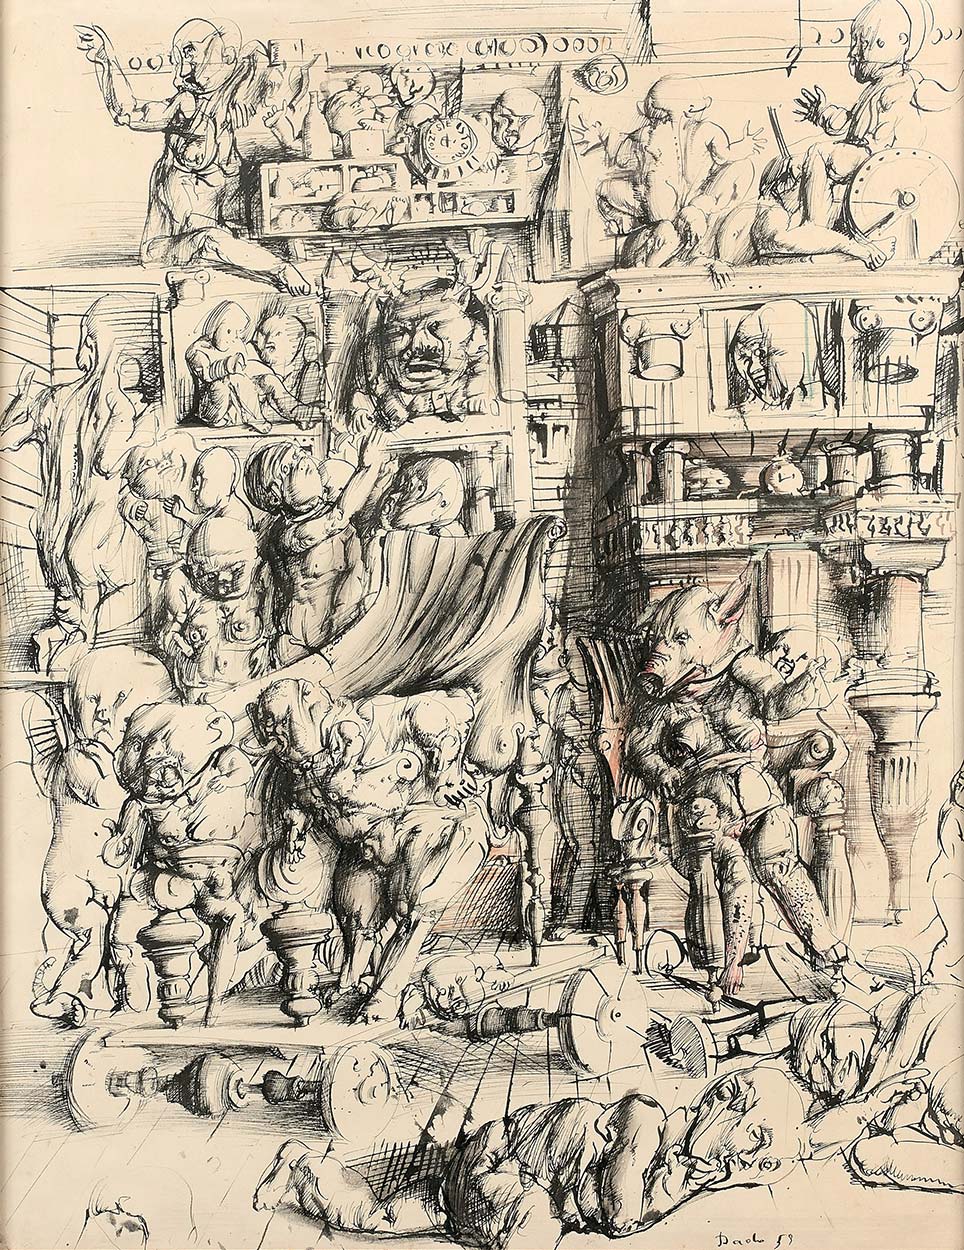 Dado 59